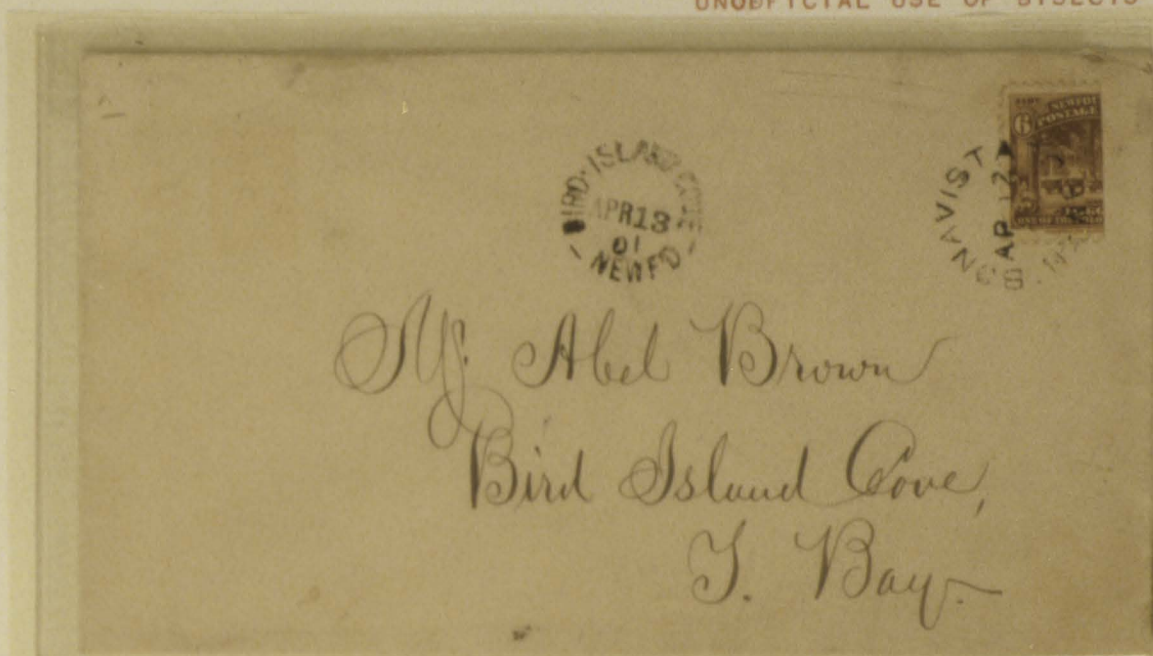 UNOFFICIAL USE OF BISECTS
BIRD-ISLAND COVE
APR 13
01
NEWF'D
BONAVIST
AP 12
6
NEWFOU
POSTAGE
Mr. Abel Brown
Bird Island Cove,
T. Bay.